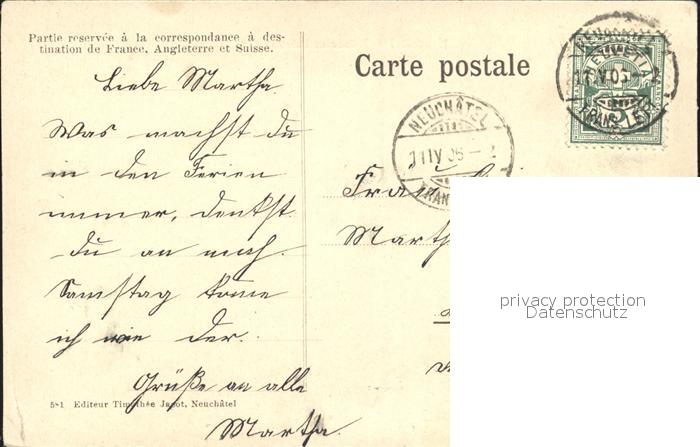 Partie reservée à la correspondance à des-
tination de France, Angleterre et Suisse.
Carte postale
Liebe Martha.
Was machst du
in den Ferien
immer, denkst
du an mich.
Samstag kome
ich wie der.
Grüße an alle
Martha.
581 Editeur Timothée Jacot, Neuchâtel
HELVETIA
NEUCHÂTEL
11 IV 05
Martha
privacy protection
Datenschutz